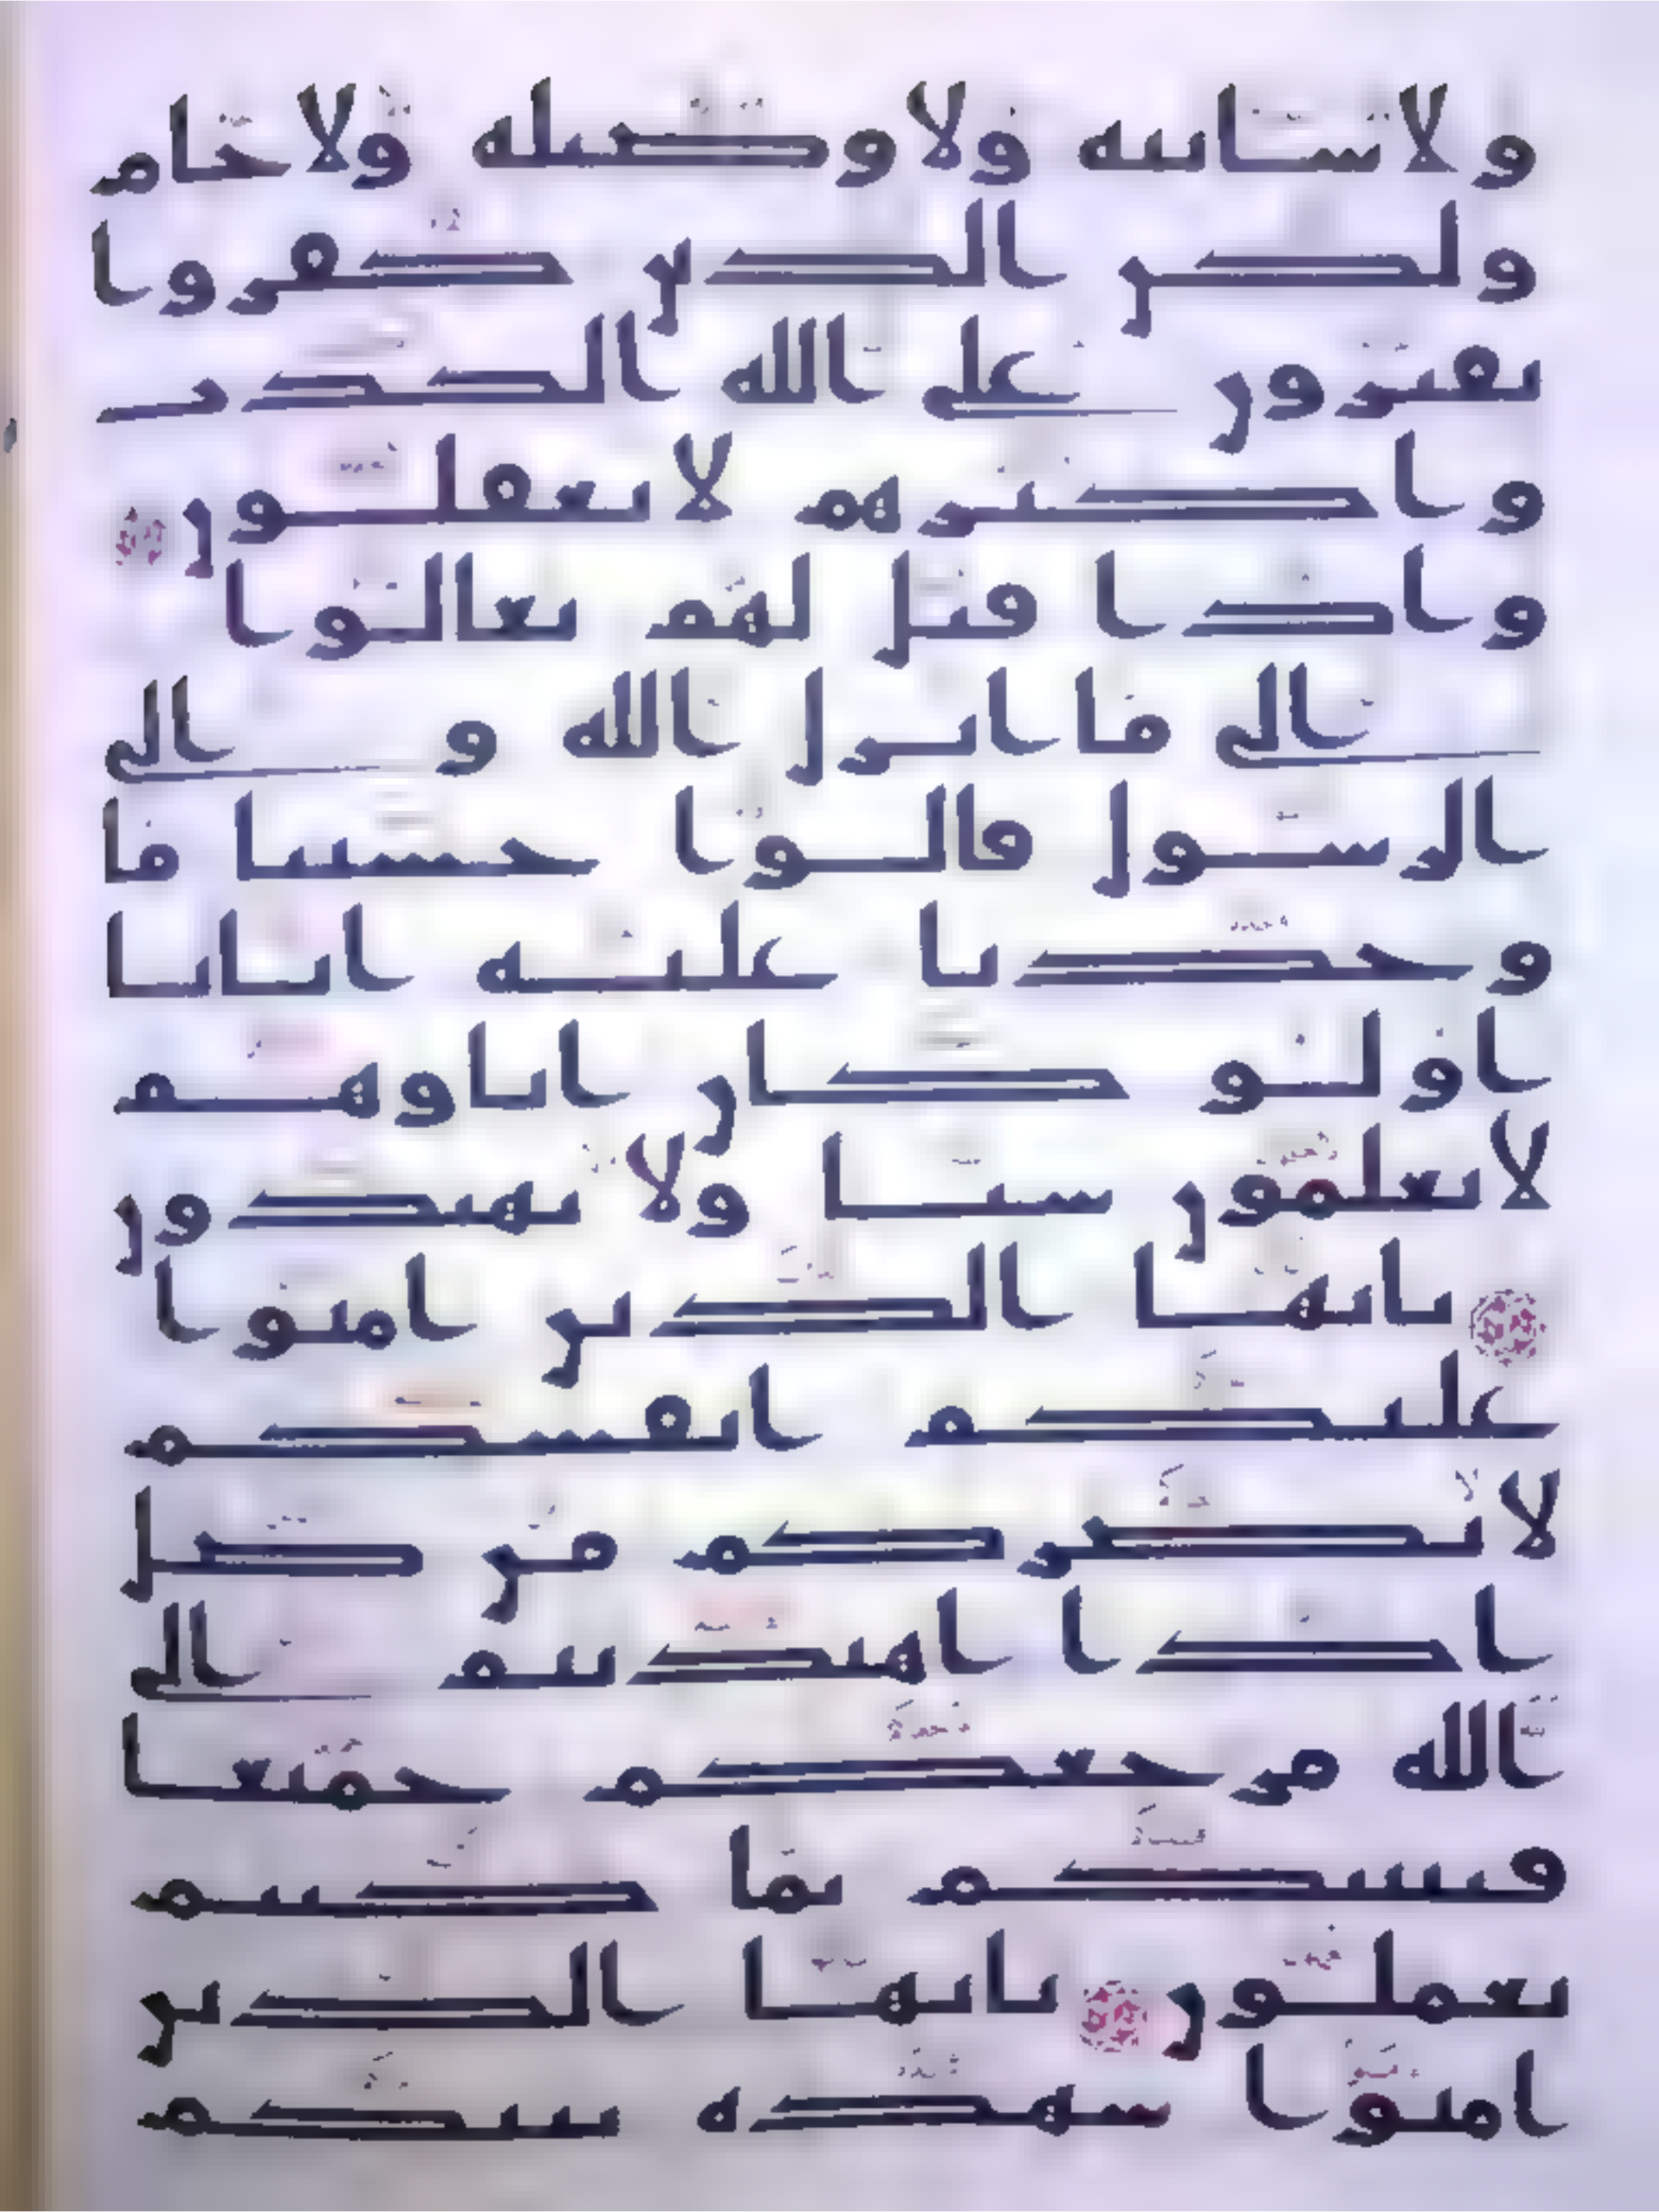 ولا سائبة ولا وصيلة ولا حام
ولكن الذين كفروا
يفترون على الله الكذب
واكثرهم لا يعقلون
واذا قيل لهم تعالوا
الى ما انزل الله و الى
الرسول قالوا حسبنا ما
وجدنا عليه ابانا
اولو كان اباوهم
لا يعلمون شيا ولا يهتدون
يايها الذين امنوا
عليكم انفسكم
لا يضركم من ضل
اذا اهتديتم الى
الله مرجعكم جميعا
فينبيكم بما كنتم
تعملون يايها الذين
امنوا شهده بينكم